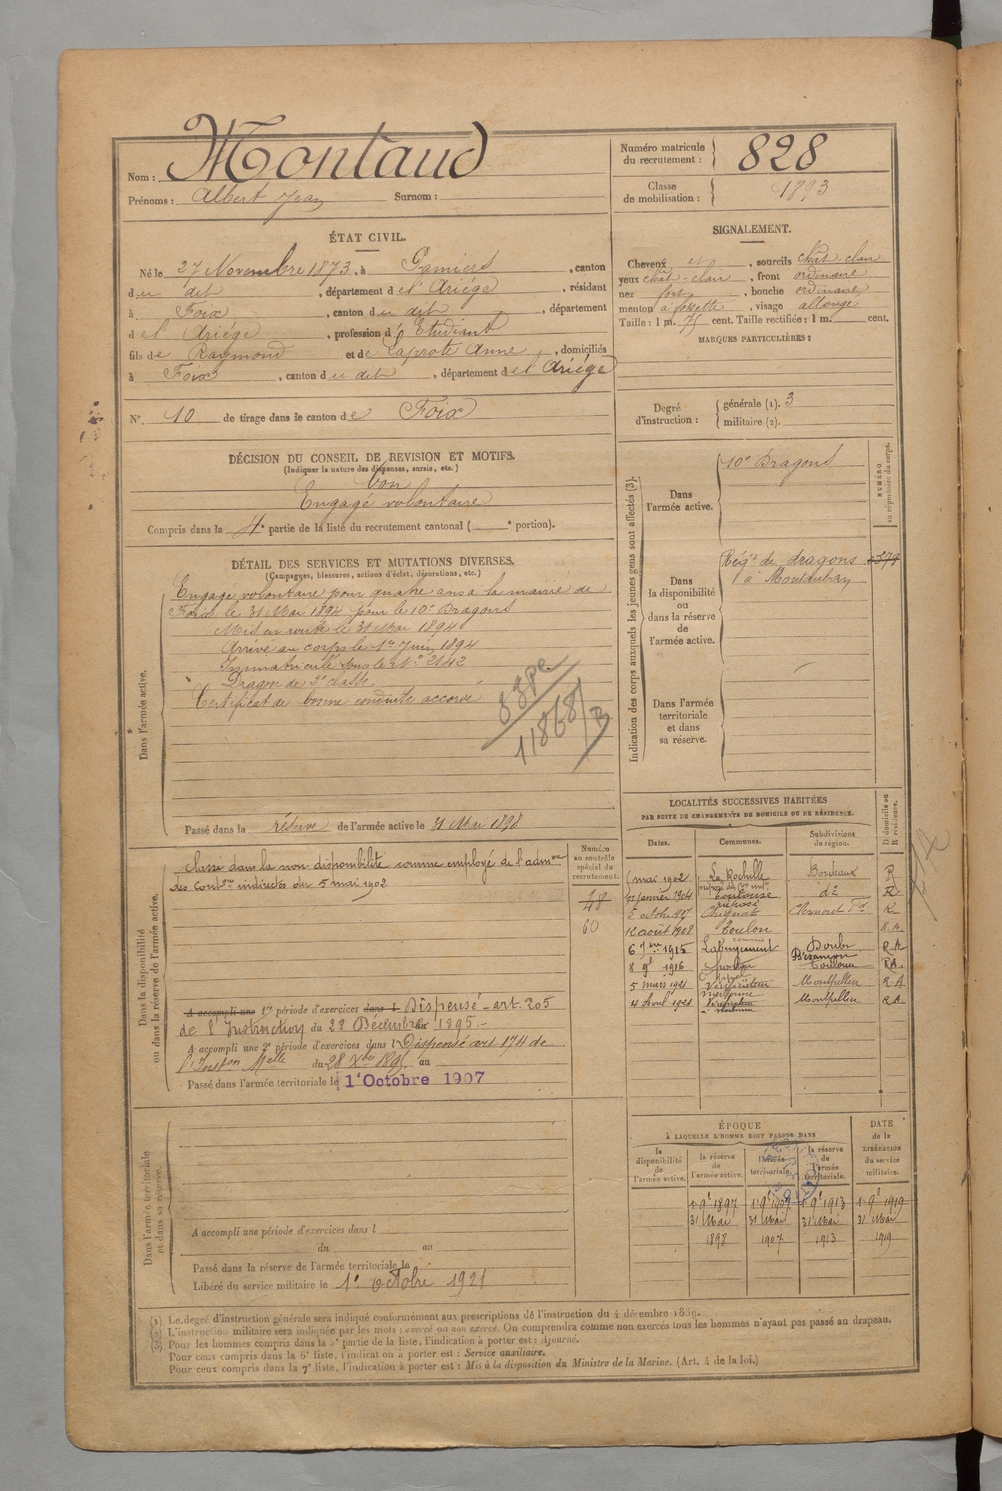 Nom : Montaud
Prénoms : Albert Jean Surnom :
Numéro matricule du recrutement : 828
Classe de mobilisation : 1893
ÉTAT CIVIL.
Né le 27 Novembre 1873, à Pamiers, canton
du dit, département de l'Ariége, résidant
à Foix, canton du dit, département
de l'Ariége, profession d'Etudiant
fils de Raymond et de Laprote Anne, domiciliés
à Foix, canton du dit, département de l'Ariége
N° 10 de tirage dans le canton de Foix
SIGNALEMENT.
Cheveux et, sourcils chât-clair
yeux chât-clair, front ordinaire
nez fort, bouche ordinaire
menton à fossette, visage allongé
Taille : 1 m. 75 cent. Taille rectifiée : 1 m. cent.
MARQUES PARTICULIÈRES :
Degré d'instruction : générale (1). 3
militaire (2).
DÉCISION DU CONSEIL DE REVISION ET MOTIFS.
(Indiquer la nature des dispenses, sursis, etc.)
bon
Engagé volontaire
Compris dans la 4e partie de la liste du recrutement cantonal ( e portion).
DÉTAIL DES SERVICES ET MUTATIONS DIVERSES.
(Campagnes, blessures, actions d'éclat, décorations, etc.)
Dans l'armée active.
Engagé volontaire pour quatre ans à la mairie de
Foix le 31 Mai 1894 pour le 10e Dragons
Mis en route le 31 Mai 1894
Arrivé au corps le 1er Juin 1894
Immatriculé sous le N° 2142
Dragon de 2e classe
Certificat de bonne conduite accordé
11868/B
Passé dans la réserve de l'armée active le 31 Mai 1898
Indication des corps auxquels les jeunes gens sont affectés (3).
NUMÉRO au répertoire du corps.
Dans l'armée active.
10e Dragons
Dans la disponibilité ou dans la réserve de l'armée active.
Régt de dragons
à Montauban
Dans l'armée territoriale et dans sa réserve.
Dans la disponibilité ou dans la réserve de l'armée active.
Numéro au contrôle spécial du recrutement.
48
60
Classé dans la non disponibilité comme employé de l'admon
des Contons indirectes du 5 mai 1902
A accompli une 1re période d'exercices dans l Dispensé - art. 205
de l'Instruction du 28 Décembre 1895.-
A accompli une 2e période d'exercices dans l Dispensé art 174 de
l'Inston Melle du 28 Xbre 1895 au
Passé dans l'armée territoriale le 1er Octobre 1907
LOCALITÉS SUCCESSIVES HABITÉES
PAR SUITE DE CHANGEMENTS DE DOMICILE OU DE RÉSIDENCE.
Dates. Communes. Subdivisions de région. D domicile ou R résidence.
5 mai 1902 La Rochelle Bordeaux R
21 janvier 1904 Toulouse do R
5 octobre 1907 R
12 août 1908 Toulon R.A
6 7bre 1915 Doubs R.A
8 9e 1916 Besançon Toulouse RA.
5 mars 1921 Vérificateur Montpellier R.A
4 Avril 1921 Vérificateur Montpellier RA
Dans l'armée territoriale et dans sa réserve.
A accompli une période d'exercices dans l
du au
Passé dans la réserve de l'armée territoriale le
Libéré du service militaire le 1er octobre 1921
ÉPOQUE
À LAQUELLE L'HOMME DOIT PASSER DANS
la disponibilité de l'armée active. la réserve de l'armée active. l'armée territoriale. la réserve de l'armée territoriale. DATE de la LIBÉRATION du service militaire.
1er 9e 1897 1er 9e 1907 1er 9e 1913 1er 9e 1919
31 Mai 31 Mai 31 Mai 31 Mai
1898 1907 1913 1919
(1) Le degré d'instruction générale sera indiqué conformément aux prescriptions de l'instruction du 4 décembre 1889.
L'instruction militaire sera indiquée par les mots : exercé ou non exercé. On comprendra comme non exercés tous les hommes n'ayant pas passé au drapeau.
Pour les hommes compris dans la 5e partie de la liste, l'indication à porter est : Ajourné.
Pour ceux compris dans la 6e liste, l'indication à porter est : Service auxiliaire.
Pour ceux compris dans la 7e liste, l'indication à porter est : Mis à la disposition du Ministre de la Marine. (Art. 4 de la loi.)